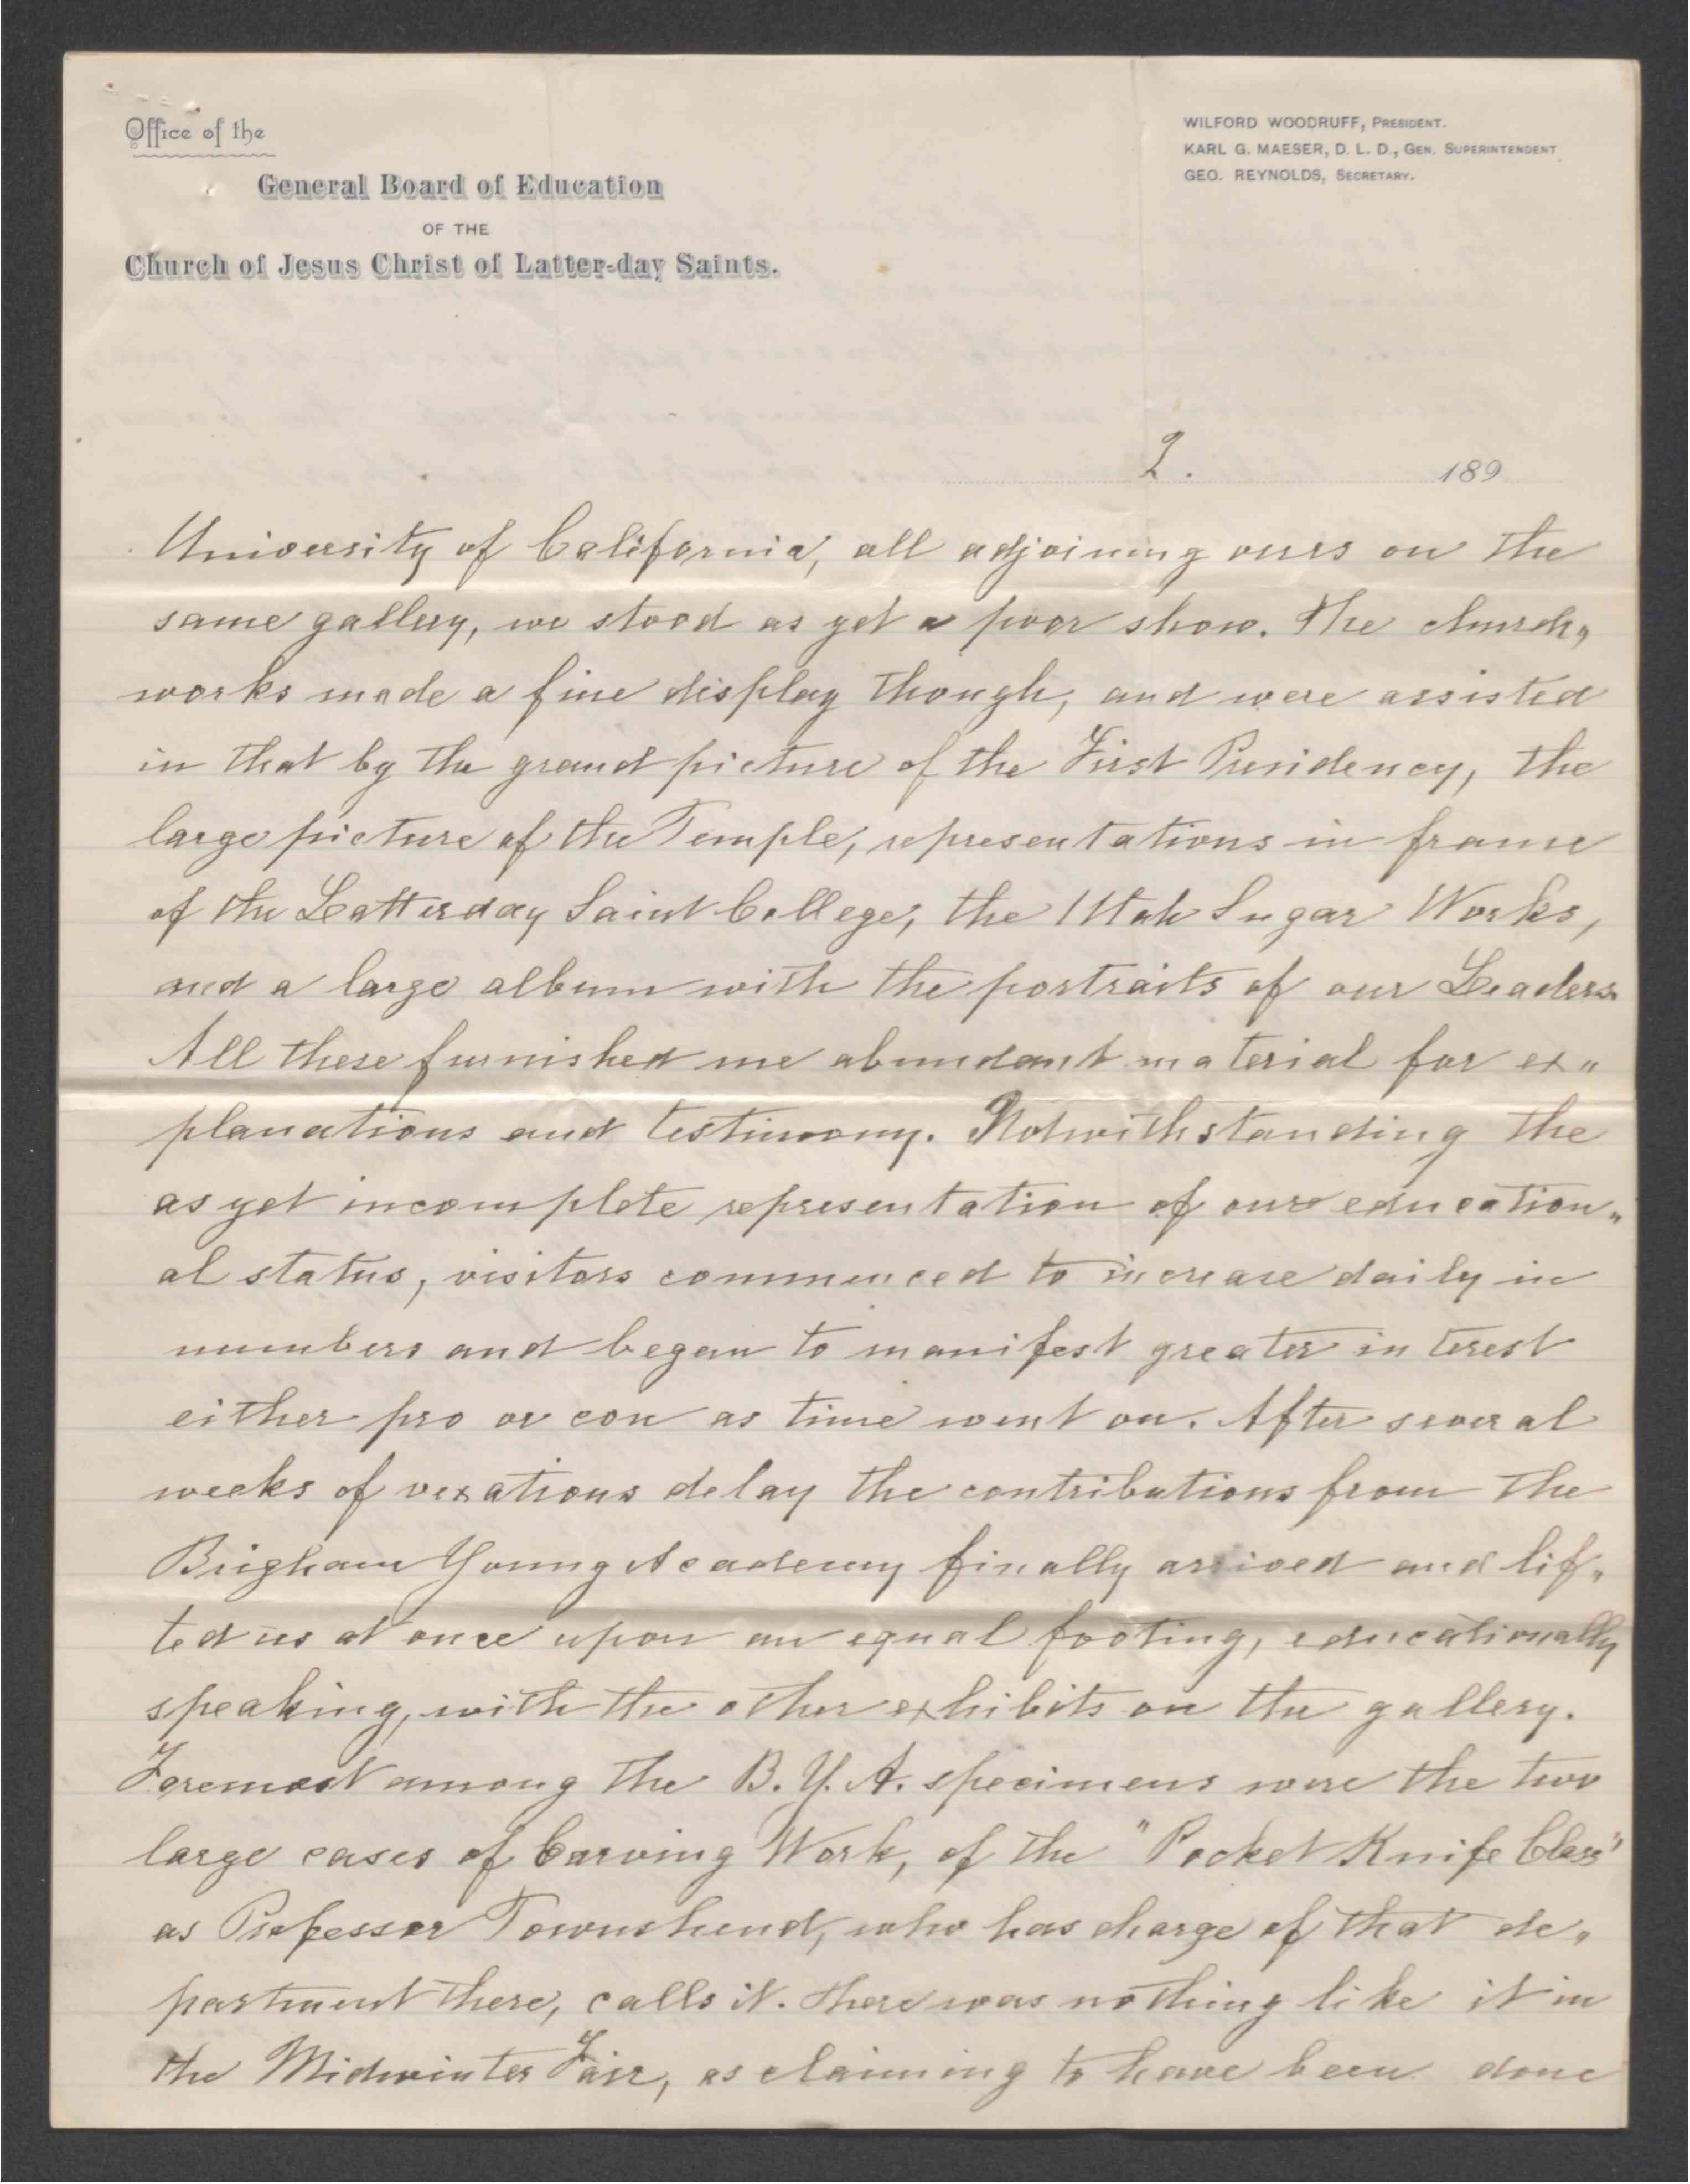 Office of the
General Board of Education
OF THE
Church of Jesus Christ of Latter-day Saints.
WILFORD WOODRUFF, PRESIDENT.
KARL G. MAESER, D. L. D., GEN. SUPERINTENDENT
GEO. REYNOLDS, SECRETARY.
2. 189
University of California, all adjoining ours on the
same gallery, we stood as yet a poor show. The church„
works made a fine display though, and were assisted
in that by the grand picture of the First Presidency, the
large picture of the Temple, representations in frame
of the Latterday Saint College, the Utah Sugar Works,
and a large album with the portraits of our Leaders.
All these furnished me abundant material for ex„
planations and testimony. Notwithstanding the
as yet incomplete representation of our education„
al status, visitors commenced to increase daily in
numbers and began to manifest greater interest
either pro or con as time went on. After several
weeks of vexatious delay the contributions from the
Brigham Young Academy finally arrived and lif„
ted us at once upon an equal footing, educationally
speaking, with the other exhibits on the gallery.
Foremost among the B. Y. A. specimens were the two
large cases of Carving Work, of the "Pocket Knife Class"
as Professor Townshend, who has charge of that de„
partment there, calls it. There was nothing like it in
the Midwinter Fair, as claiming to have been done